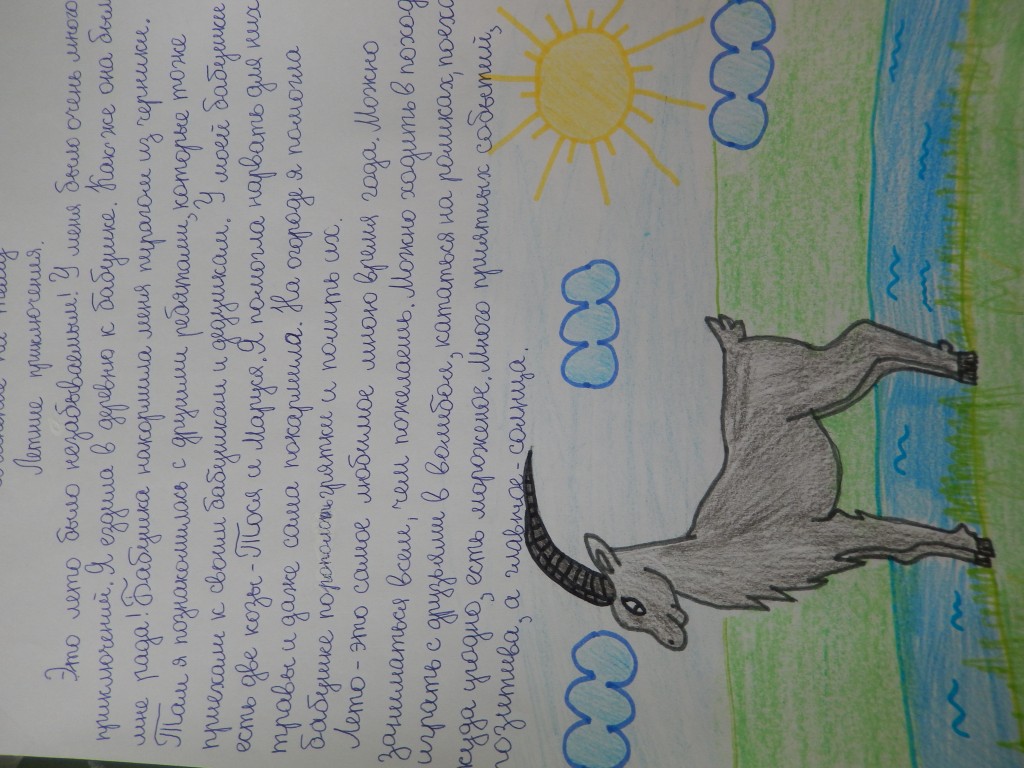 на тему
Летние приключения.
Это лето было незабываемым! У меня было очень много
приключений. Я ездила в деревню к бабушке. Как же она была
мне рада! Бабушка накормила меня пирогом из черники.
Там я познакомилась с другими ребятами, которые тоже
приехали к своим бабушкам и дедушкам. У моей бабушки
есть две козы - Тося и Маруся. Я помогла нарвать для них
травы и даже сама покормила. На огороде я помогла
бабушке прополоть грядки и полить их.
Лето - это самое любимое мною время года. Можно
заниматься всем, чем пожелаешь. Можно ходить в поход,
играть с друзьями в волейбол, кататься на роликах,
куда угодно, есть мороженое. Много приятных событий,
позитива, а главное - солнца.